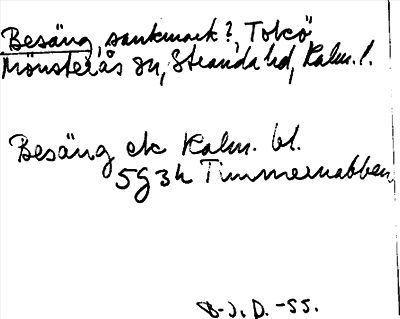 Besäng, sankmark?, Tokö
Mönsterås sn, Stranda hd, Kalm. l.
Besäng ek Kalm. bl.
5g3h Timmernabben
B-J. D. -55.